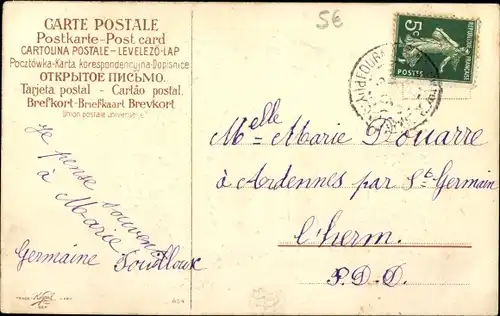 CARTE POSTALE
Postkarte-Post card
CARTOLINA POSTALE-LEVELEZŐ-LAP
Pocztówka-Karta korespondencyjna-Dopisnice
ОТКРЫТОЕ ПИСЬМО.
Tarjeta postal - Cartão postal.
Brefkort-Briefkaart Brevkort
Union postale universelle
5€
5c
POSTES
REPUBLIQUE FRANÇAISE
Je pense souvent
à Marie
Germaine
Melle Marie Douarre
à Ardennes par St Germain
l'herm.
P.D.D.